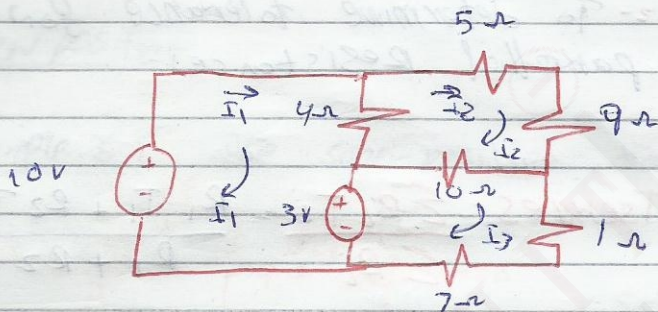 5Ω
I₁
4Ω
I₂
9Ω
I₂
10V
+
-
10Ω
I₁
3V
+
-
I₃
1Ω
7Ω